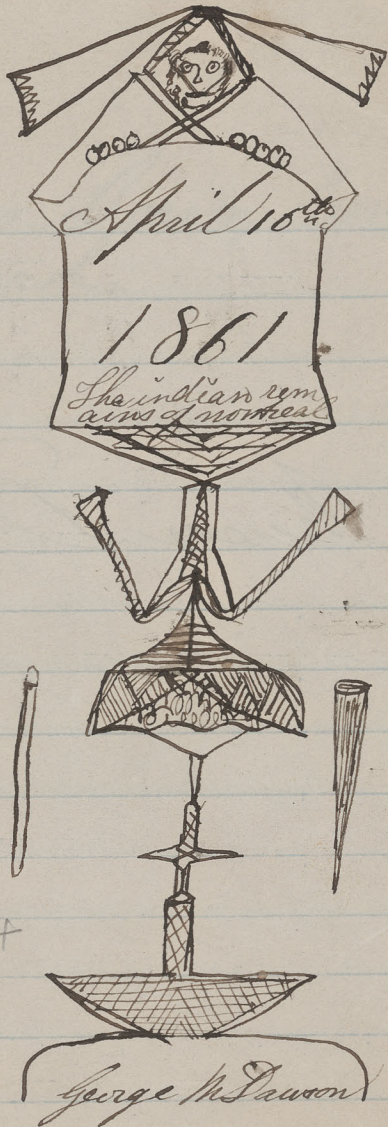 April 10th
1861
The indian rem
ains of nontreal
George M Dawson